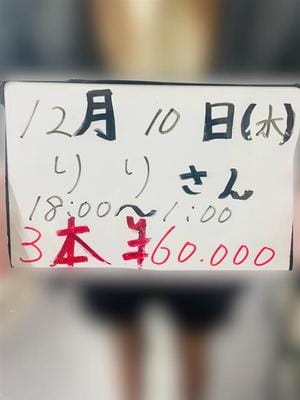 12月10日(水)
りりさん
18:00〜1:00
3本 ¥60.000